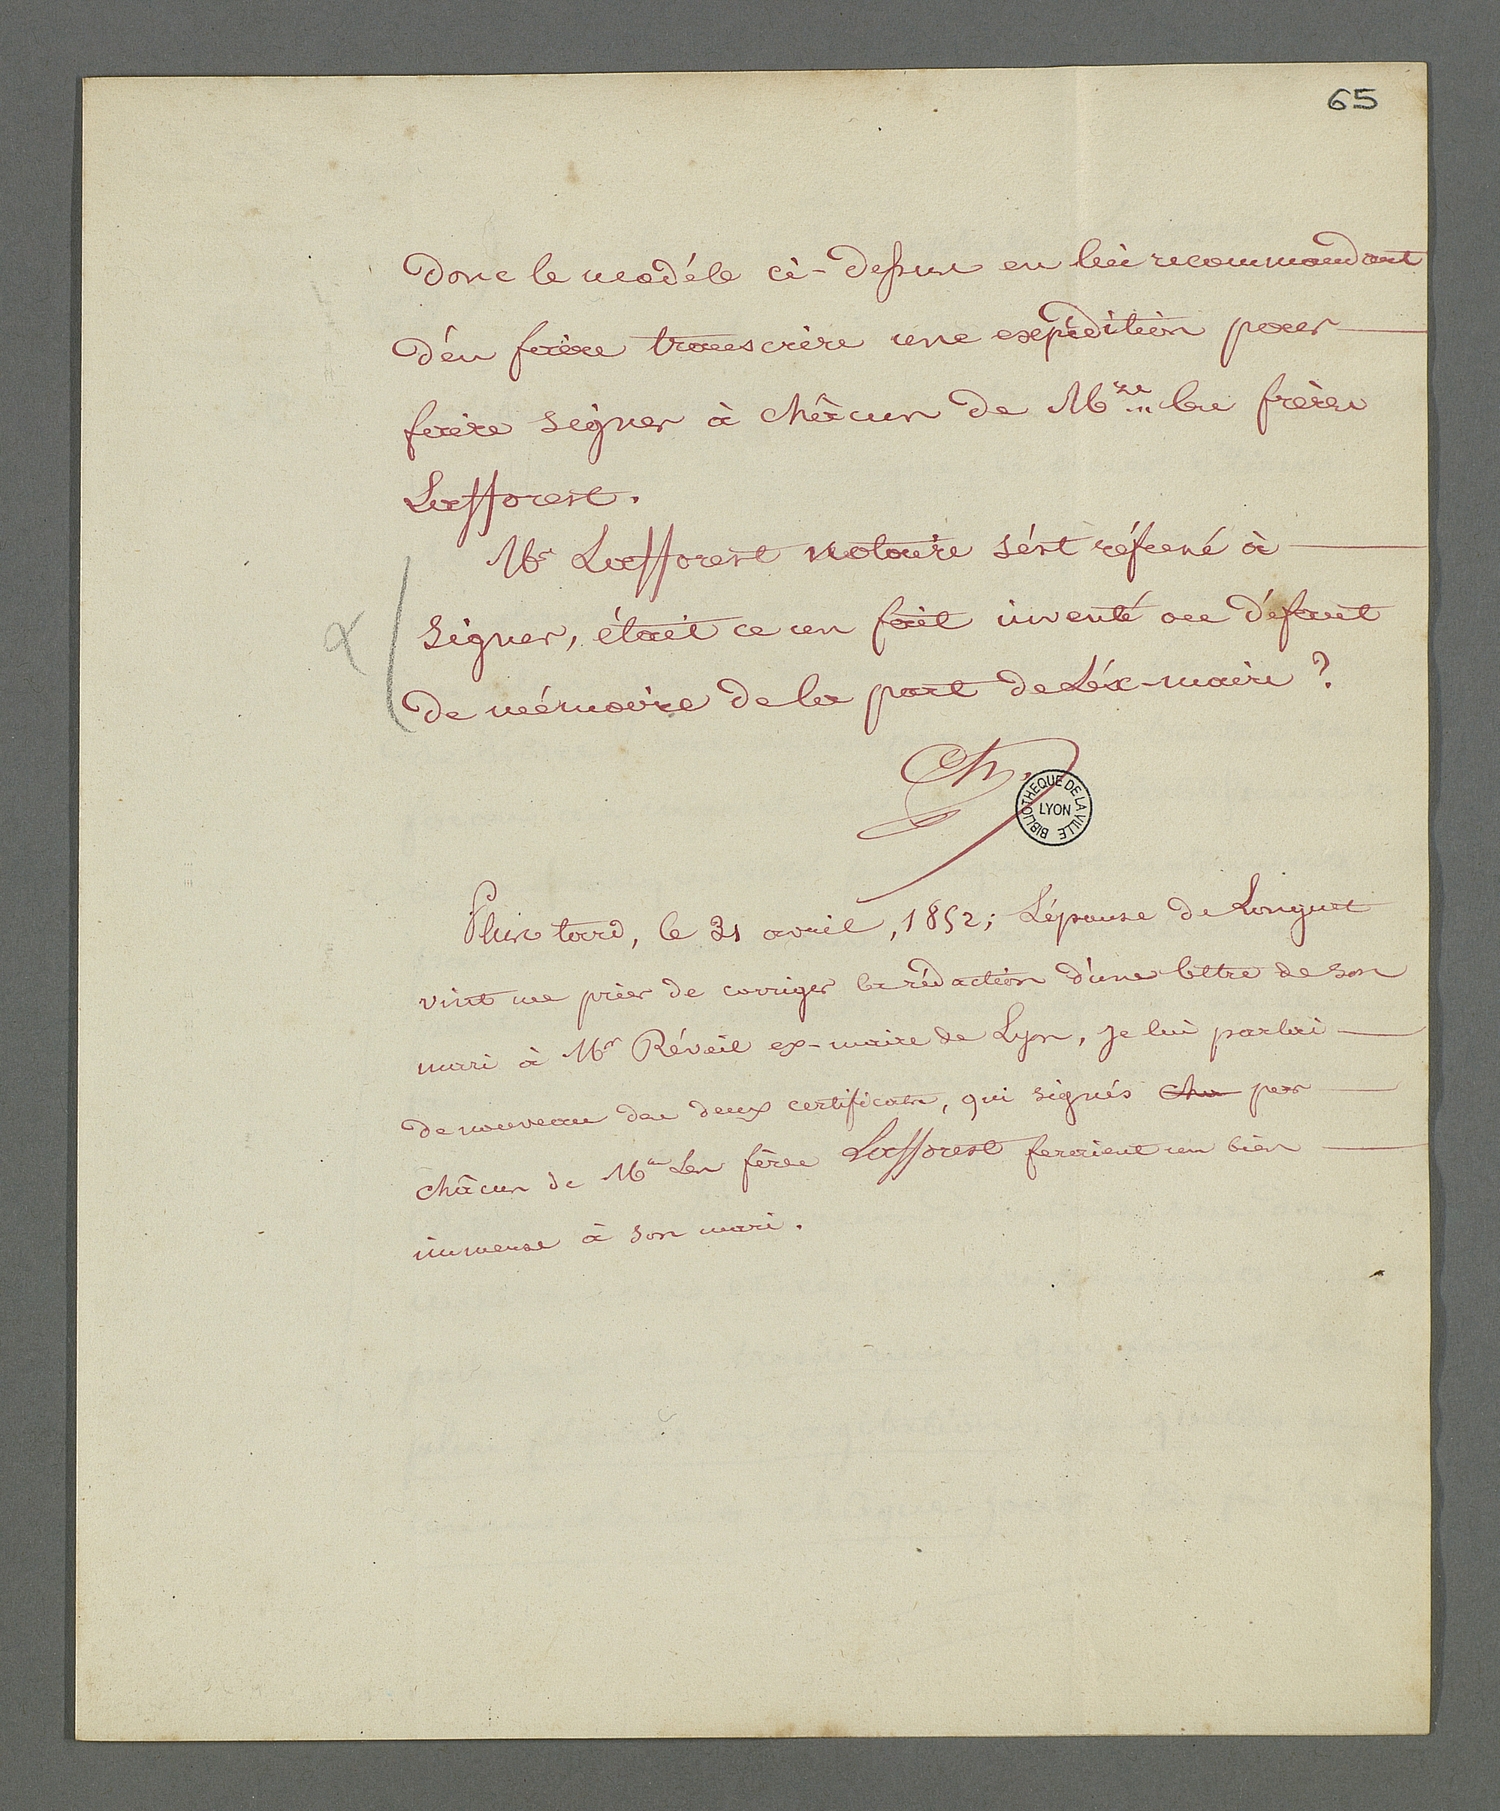 65
Donc le modéle ci-dessus en lui recommandant
d'en faire transcrire une expédition pour
faire signer à châcun de M.rs les frères
Lafforest.
Mr Lafforest notaire s'ést réfusé à
signer, était ce un fait inventé ou défaut
de mémoire de la part de L'éx-maire ?
Ch.
BIBLIOTHEQUE DE LA VILLE LYON
Plus tard, le 21 avril, 1852; L'épouse de Longuet
vint me prier de corriger la rédaction d'une lettre de son
mari à Mr Réveil ex-maire de Lyon, je lui parlai
de nouveau des deux certificats, qui signés par
châcun de Mrs Les frères Lafforest feraient un bien
immense à son mari.